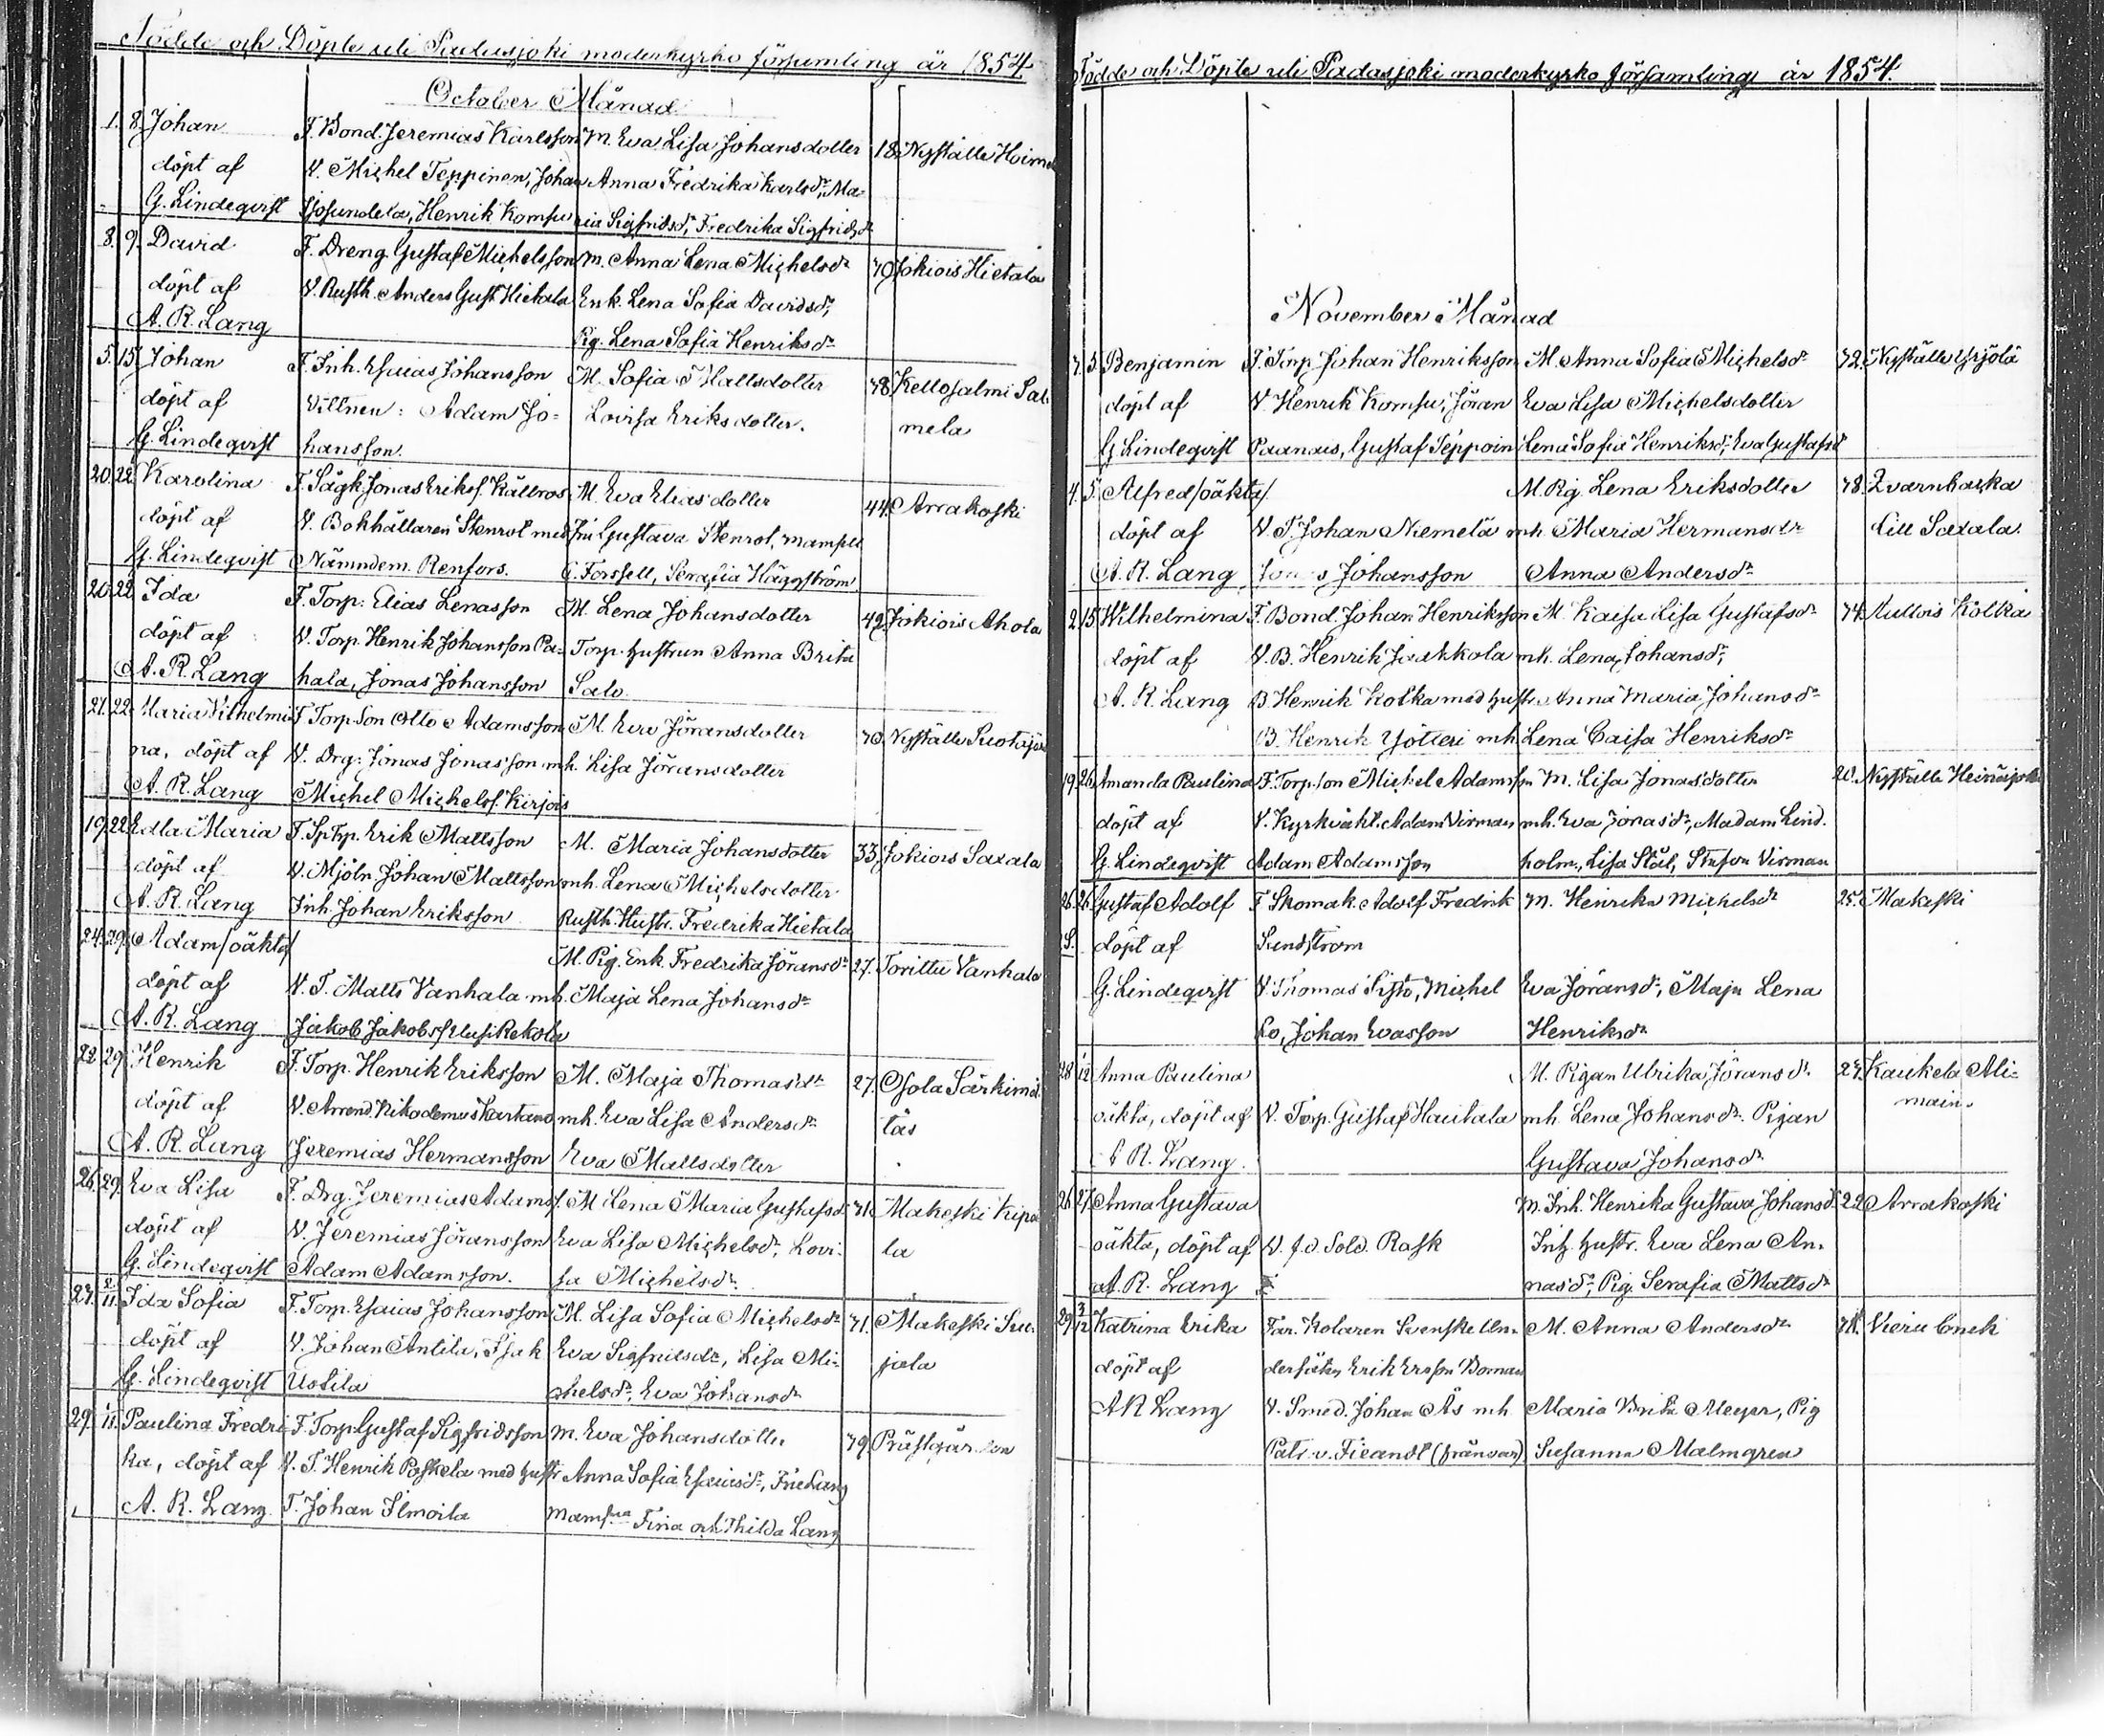 Födde och Döpte uti Padasjoki moderkyrko församling år 1854
October Månad
1. 8. Johan F. Bond. Jeremias Karlsson M. Eva Lisa Johansdotter 18. Nyställe
döpt af V. Michel Teppinen, Johan Anna Fredrika Karlsdr, Ma-
G. Lindeqvist Henrik Komsu ria Sigfridsd, Fredrika Sigfridsdr
8. 9. David F. Dreng Gustaf Michelsson M. Anna Lena Michelsdr 79 Jokiois Hietala
döpt af V. Rusth. Anders Gust Hietala Enk. Lena Sofia Davidsdr,
A. R. Lang Pig. Lena Sofia Henriksdr
5. 15. Johan F. Inh. Esaias Johansson M. Sofia Mattsdotter 78 Kellosalmi Sal
döpt af Vittnen: Adam Jo- Lovisa Eriksdotter. mela
G. Lindeqvist hansson.
20. 22. Karolina F. Sågk Jonas Eriks. Källros M. Eva Eliasdotter 44. Arrakoski
döpt af V. Bokhållaren Stenrot med fru Gustava Stenrot, mampll
G. Lindeqvist Nämndem. Renfors. C. Forssell, Serafia Häggström
20. 22. Ida F. Torp. Elias Lenasson M. Lena Johansdotter 42. Jokiois Ahola
döpt af V. Torp. Henrik Johansson Pa- Torp. hustrun Anna Brita
A. R. Lang hala, Jonas Johansson Salo.
21. 22. Maria Vilhelmi- F. Torp. Son Otto Adamsson M. Eva Jöransdotter 70. Nyställe
na, döpt af V. Drg. Jonas Jonasson mh. Lisa Jöransdotter
A. R. Lang Michel Michels. Kirjois
19. 22. Edla Maria F. Sp. Trp. Erik Mattsson M. Maria Johansdotter 33. Jokiois Saxala
döpt af V. Mjöln. Johan Mattsson mh. Lena Michelsdotter
A. R. Lang Inh. Johan Eriksson Rusth. Hustr. Fredrika Hietala
24. 29. Adam /oäkta/ M. Pig. Enk. Fredrika Jöransdr 27. Torittu Vanhala
döpt af V. T. Matts Vanhala mh. Maja Lena Johansdr
A. R. Lang Jakob Jakobss. Uusi Rekola
22. 29. Henrik F. Torp. Henrik Eriksson M. Maja Thomasdr 27. Osola Särkimä
döpt af V. Arrend. Nikodemus Kartano mh. Eva Lisa Andersdr läs
A. R. Lang Jeremias Hermansson Eva Mattsdotter
26. 29. Eva Lisa F. Drg. Jeremias Adams. M Lena Maria Gustafsd. 71. Makeski Kipa
döpt af V. Jeremias Jöransson Eva Lisa Michelsdr, Lovi- la
G. Lindeqvist Adam Adamsson. sa Michelsdr.
27. 2/11. Ida Sofia F. Torp. Esaias Johansson M. Lisa Sofia Michelsdr 71. Makeski Su
döpt af V. Johan Antila, Isak Eva Sigfridsdr, Lisa Mi- jala
G. Lindeqvist Uotila chelsdr, Eva Johansdr
29. 1/11. Paulina Fredri- F. Torp. Gustaf Sigfridsson M. Eva Johansdotter 79. Prästgården
ka, döpt af V. T. Henrik Paskela med hustr Anna Sofia Esaiasdr, Fru Lang
A. R. Lang T. Johan Ilmoila Mamsna Fina och Thilda Lang
Födde och Döpte uti Padasjoki moderkyrko församling år 1854.
November Månad
3. 5. Benjamin F. Torp. Johan Henriksson M. Anna Sofia Michelsdr 72. Nyställe Yrjölä
döpt af V. Henrik Komsu, Jöran Eva Lisa Michelsdotter
G. Lindeqvist Gustaf Lena Sofia Henriksdr, Eva Gustafsd
4. 5. Alfred /oäkta/ M. Pig. Lena Eriksdotter 78. Qvarnbacka
döpt af V. T. Johan Niemelä mh. Maria Hermansdr Lill Saxala.
A. R. Lang Johansson Anna Andersdr
2. 15. Wilhelmina F. Bond. Johan Henriksson M. Kaisa Lisa Gustafsdr 74. Auttois Kolka
döpt af V. B. Henrik Jaakkola mh. Lena Johansdr,
A. R. Lang B. Henrik Kolka med hustr. Anna Maria Johansdr
B. Henrik Yötteri mh. Lena Caisa Henriksdr
19. 26. Amanda Paulina F. Torp. son Michel Adamsson M. Lisa Jonasdotter 20. Nyställe Heinäjoki
döpt af V. Kyrkväkt. Adam Virman mh. Eva Jonasdr, Madam Lind-
G. Lindeqvist Adam Adamsson holm, Lisa Stål, Stefan Virman
26. 26. Gustaf Adolf F. Skomak. Adolf Fredrik M. Henrika Michelsdr 25. Makeski
döpt af Sundström
G. Lindeqvist V. Thomas Sipto, Michel Eva Jöransdr, Maja Lena
Lo, Johan Evasson Henriksdr
28. 1/12 Anna Paulina M. Pigan Ulrika Jöransdr. 27. Kaukela Ali-
oäkta, döpt af V. Torp. Gustaf Hautala mh. Lena Johansdr. Pigan main.
A. R. Lang. Gustava Johansdr.
26. 27. Anna Gustava M. Inh. Henrika Gustava Johansdr 22 Arrakoski
oäkta, döpt af V. f.d. Sold. Rask Inh. hustr. Eva Lena An-
A. R. Lang nasdr, Pig. Serafia Mattsdr
29. 3/12 Katrina Erika Far. Kolaren Svenske Un- M. Anna Andersdr 71. Vieru Bruk
döpt af dersåten Erik Ersson Bornan
A R Lang V. Smed. Johan Ås mh Maria Brita Meyer, Pig
Patr. v. Fieandt (frånvar) Susanna Malmgren